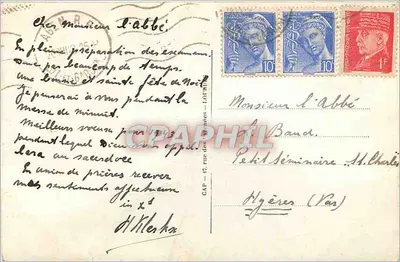 Cher Monsieur l'abbé
En pleine préparation des examens
pas beaucoup de temps.
Une bonne et sainte fête de Noël
Je penserai à vous pendant la
messe de minuit.
Meilleurs voeux pour
pendant lequel Dieu vous appel-
lera au sacerdoce
En union de prières recevez
mes sentiments affectueux
in
10
10
1F
CAP
Monsieur l'Abbé
Le Baud
Petit Séminaire St. Charles
Hyères (Var)
CARAPHIL